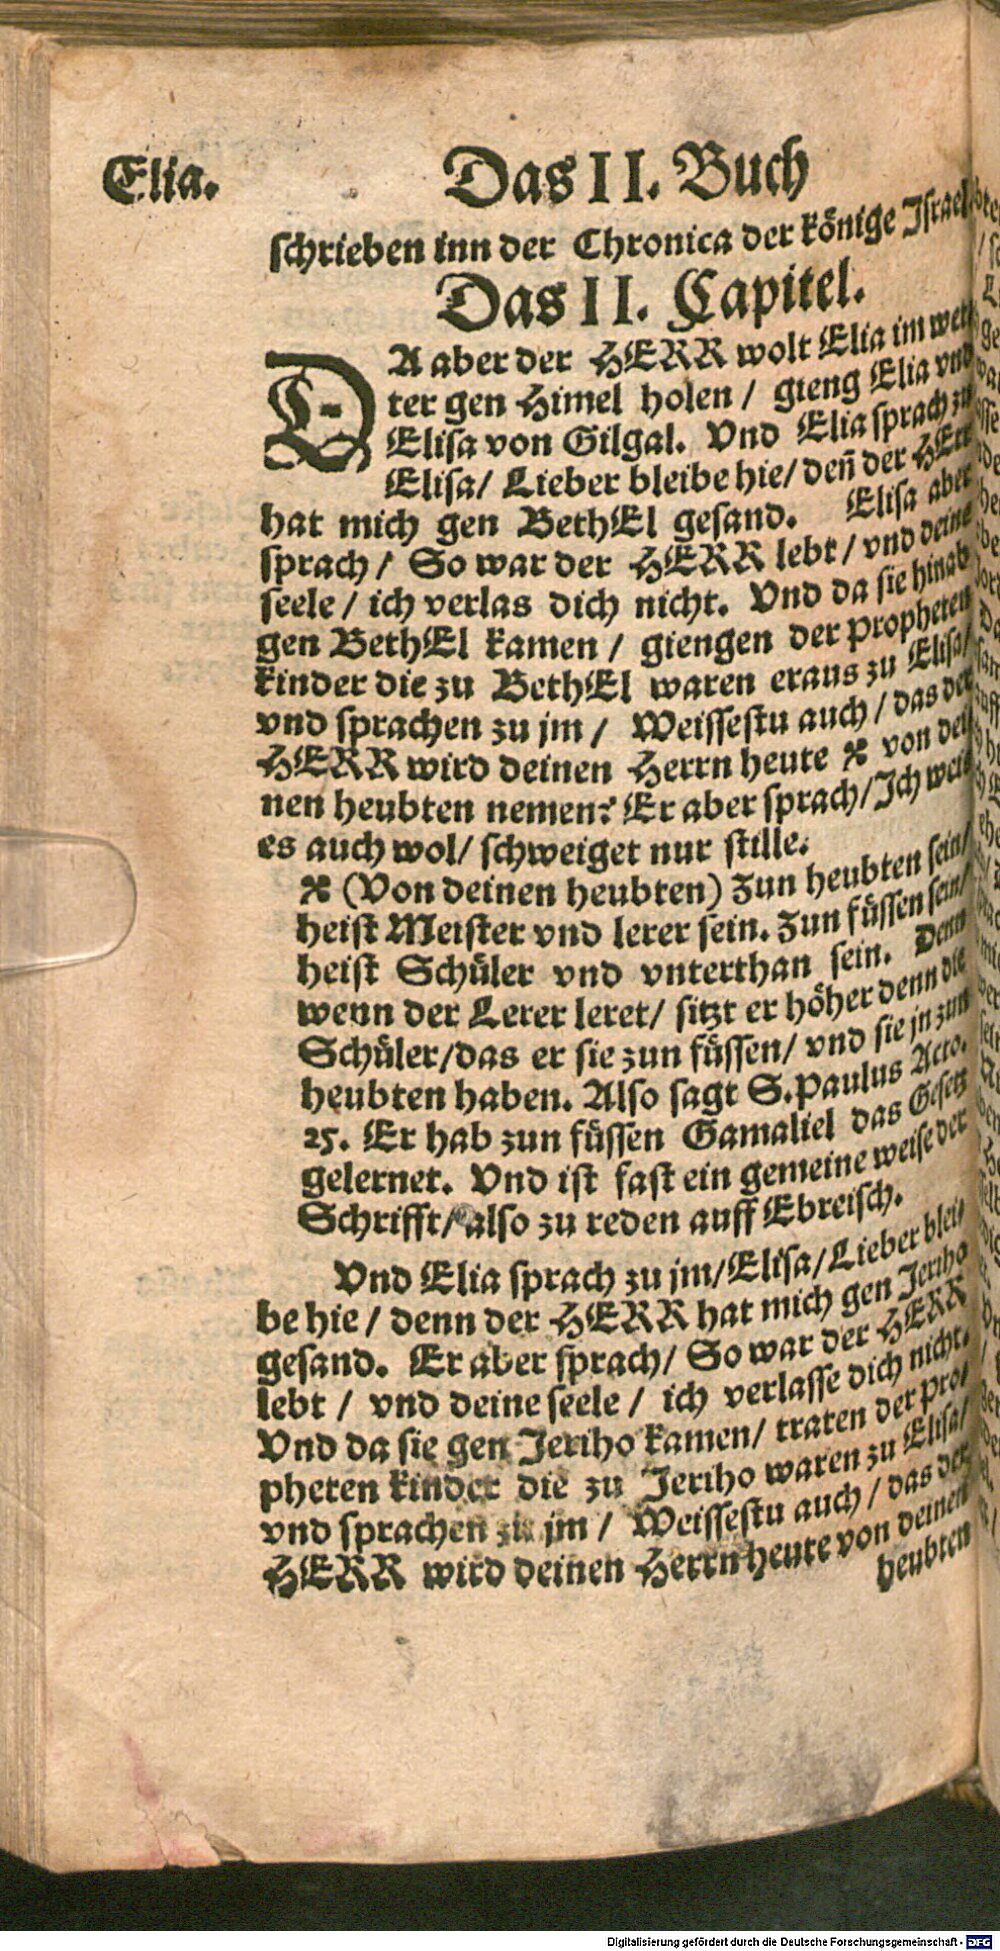 Elia.
Das II. Buch
schrieben inn der Chronica der könige Israel
Das II. Capitel.
DA aber der HERR wolt Elia im wet
ter gen Himel holen / gieng Elia vnd
Elisa von Gilgal. Vnd Elia sprach zu
Elisa/ Lieber bleibe hie/ deñ der HErr
hat mich gen BethEl gesand. Elisa aber
sprach / So war der HERR lebt / vnd deine
seele / ich verlas dich nicht. Vnd da sie hinab
gen BethEl kamen / giengen der Propheten
kinder die zu BethEl waren eraus zu Elisa/
vnd sprachen zu jm / Weissestu auch / das der
HERR wird deinen Herrn heute * von dei
nen heubten nemen? Er aber sprach/ Ich weis
es auch wol/ schweiget nur stille.
* (Von deinen heubten) Zun heubten sein/
heist Meister vnd lerer sein. Zun füssen sein/
heist Schüler vnd vnterthan sein. Denn
wenn der Lerer leret/ sitzt er höher denn die
Schüler/das er sie zun füssen/ vnd sie jn zun
heubten haben. Also sagt S. Paulus Acto.
25. Er hab zun füssen Gamaliel das Gesetz
gelernet. Vnd ist fast ein gemeine weise der
Schrifft/ also zu reden auff Ebreisch.
Vnd Elia sprach zu jm/ Elisa/ Lieber blei/
be hie / denn der HERR hat mich gen Jeriho
gesand. Er aber sprach/ So war der HERR
lebt / vnd deine seele / ich verlasse dich nicht.
Vnd da sie gen Jeriho kamen/ traten der Pro/
pheten kinder die zu Jeriho waren zu Elisa/
vnd sprachen zu jm / Weissestu auch / das der
HERR wird deinen Herrn heute von deinen
heubten
Digitalisierung gefördert durch die Deutsche Forschungsgemeinschaft - DFG